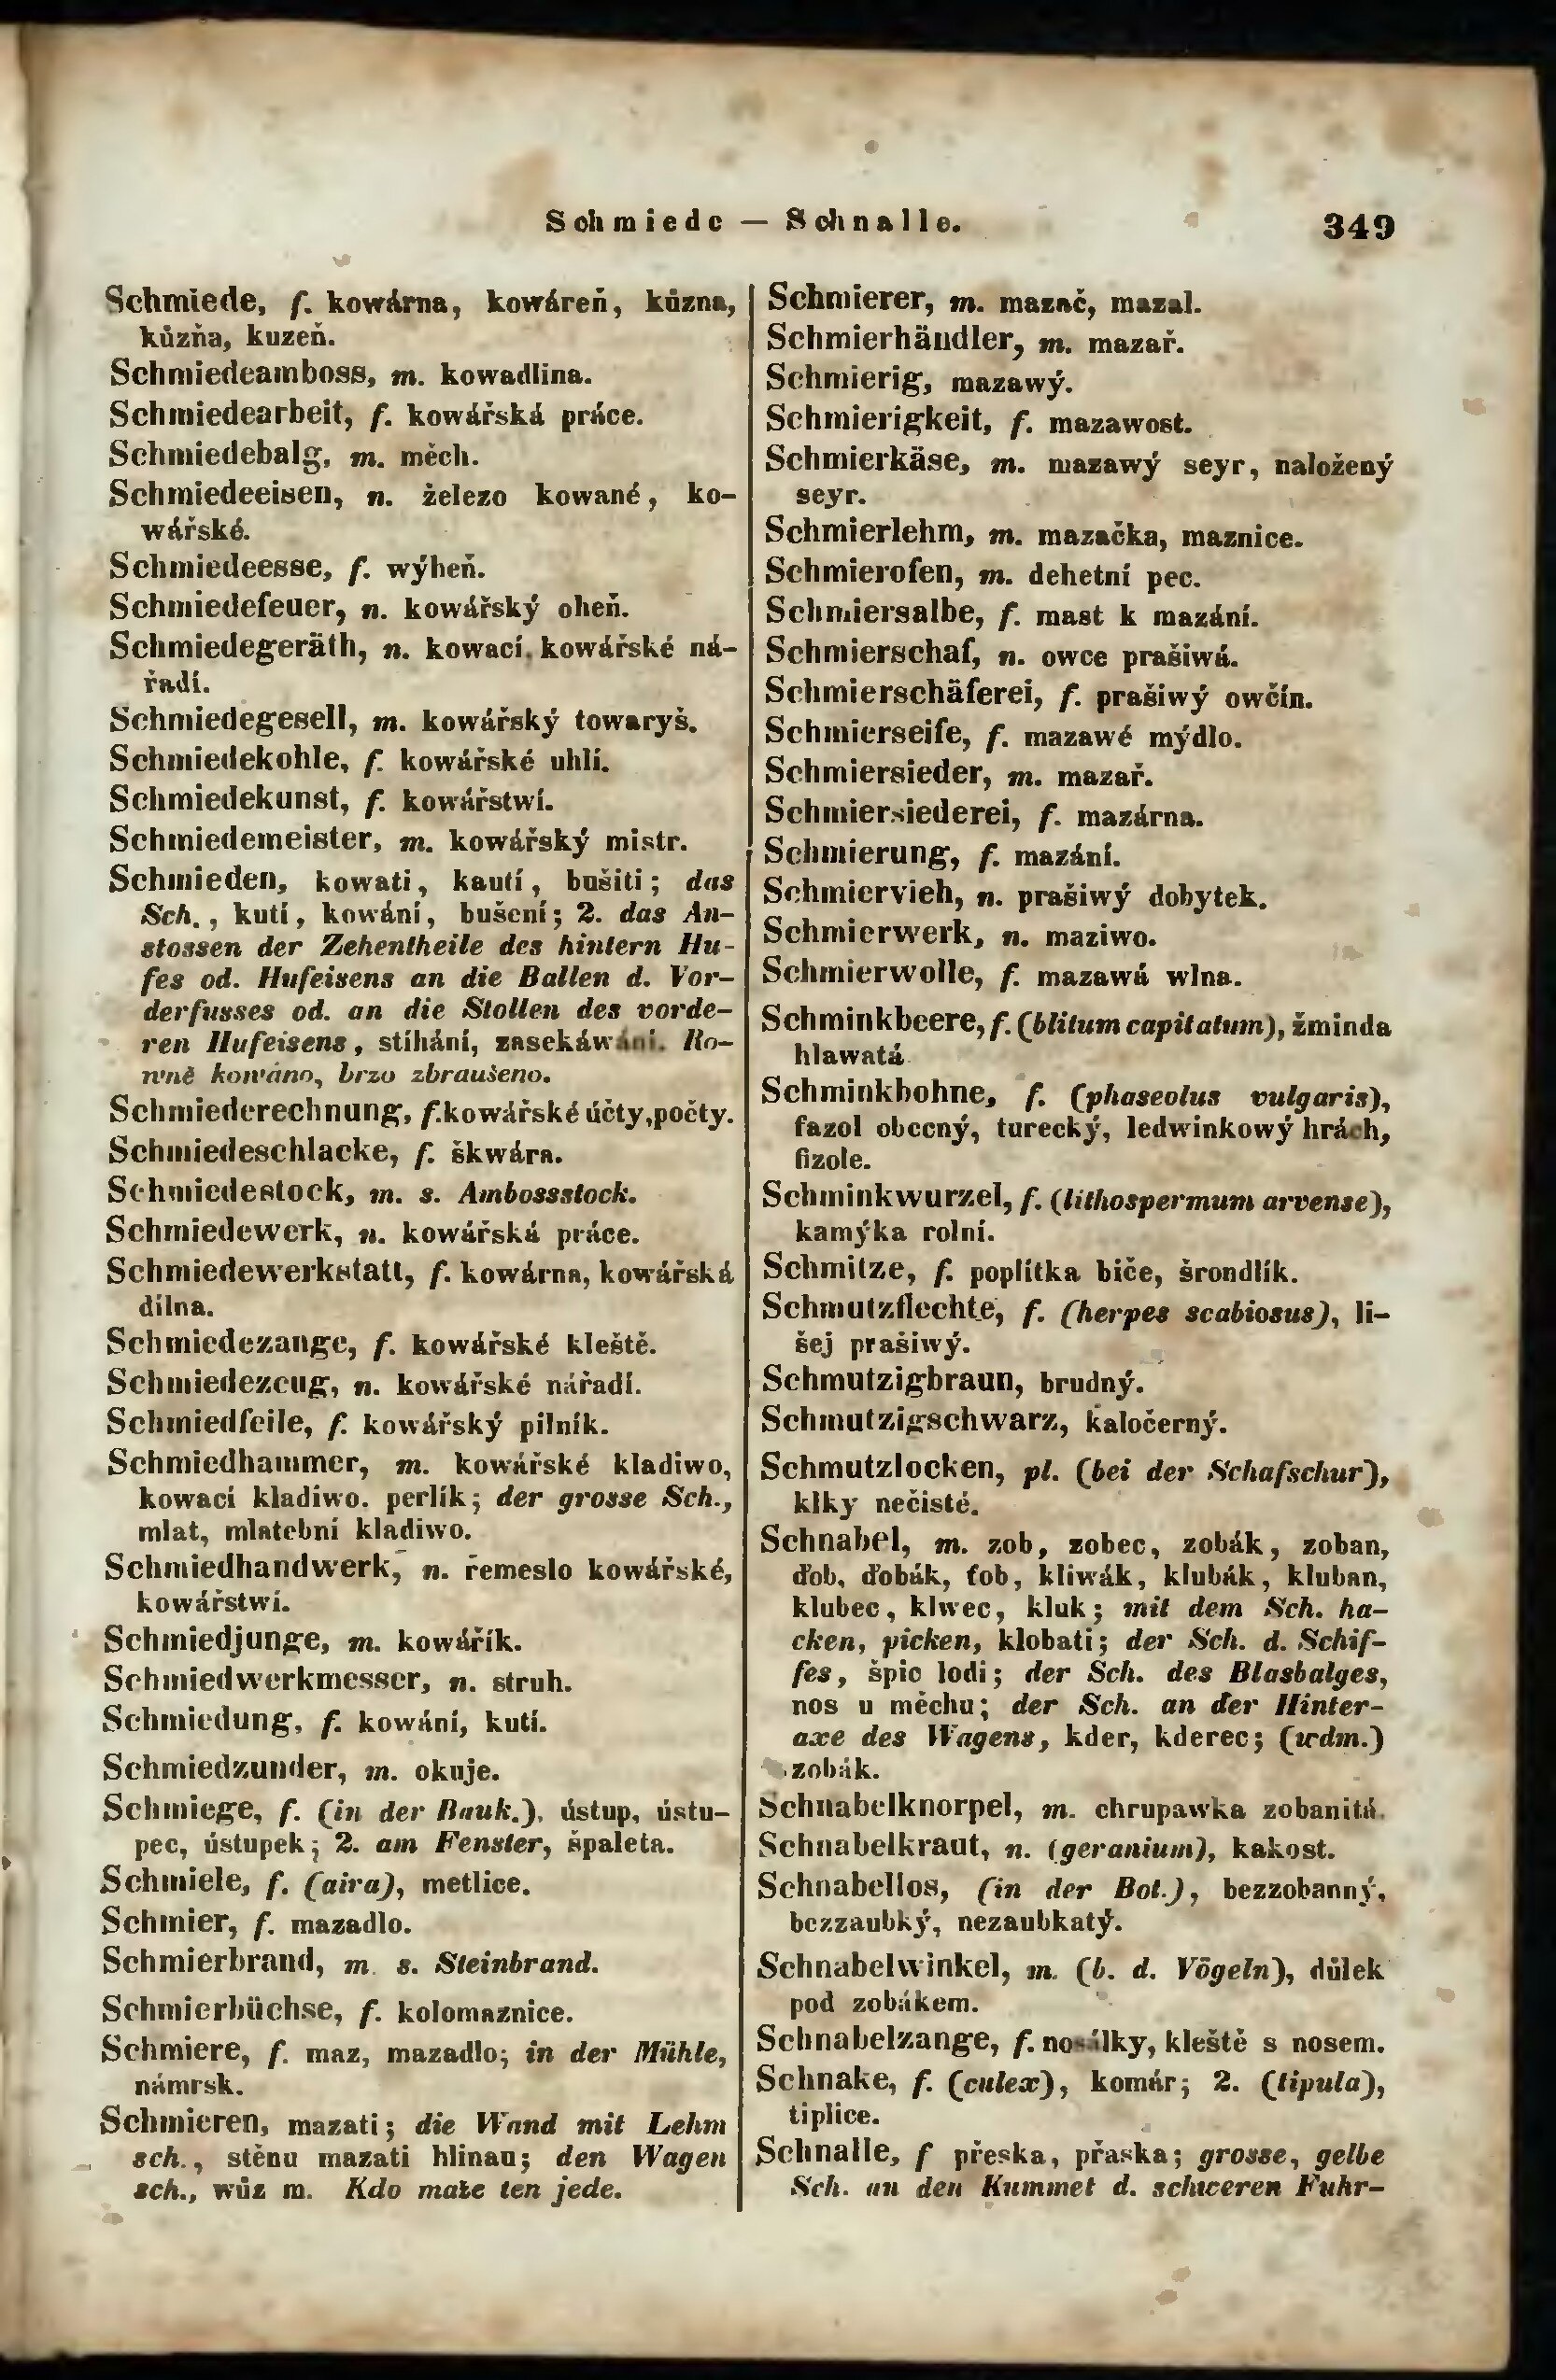 Schmiede — Schnalle.
349
Schmiede, f. kowárna, kowáreň, kůzna,
kůzňa, kuzeň.
Schmiedeamboss, m. kowadlina.
Schmiedearbeit, f. kowářská práce.
Schmiedebalg, m. měch.
Schmiedeeisen, n. železo kowané, ko-
wářské.
Schmiedeesse, f. wýheň.
Schmiedefeuer, n. kowářský oheň.
Schmiedegeräth, n. kowací, kowářské ná-
řadí.
Schmiedegesell, m. kowářský towaryš.
Schmiedekohle, f. kowářské uhlí.
Schmiedekunst, f. kowářstwí.
Schmiedemeister, m. kowářský mistr.
Schmieden, kowati, kautí, bušiti; das
Sch., kutí, kowání, bušení; 2. das An-
stossen der Zehentheile des hintern Hu-
fes od. Hufeisens an die Ballen d. Vor-
derfusses od. an die Stollen des vorde-
ren Hufeisens, stíhání, zasekáwání. Ro-
wně kowáno, brzo zbraušeno.
Schmiederechnung, f. kowářské účty, počty.
Schmiedeschlacke, f. škwára.
Schmiedestock, m. s. Ambossstock.
Schmiedewerk, n. kowářská práce.
Schmiedewerkstatt, f. kowárna, kowářská
dílna.
Schmiedezange, f. kowářské kleště.
Schmiedezeug, n. kowářské nářadí.
Schmiedfeile, f. kowářský pilník.
Schmiedhammer, m. kowářské kladiwo,
kowací kladiwo. perlík; der grosse Sch.,
mlat, mlatební kladiwo.
Schmiedhandwerk, n. řemeslo kowářské,
kowářstwí.
Schmiedjunge, m. kowářík.
Schmiedwerkmesser, n. struh.
Schmiedung, f. kowání, kutí.
Schmiedzunder, m. okuje.
Schmiege, f. (in der Bauk.), ústup, ústu-
pec, ústupek; 2. am Fenster, špaleta.
Schmiele, f. (aira), metlice.
Schmier, f. mazadlo.
Schmierbrand, m. s. Steinbrand.
Schmierbüchse, f. kolomaznice.
Schmiere, f. maz, mazadlo; in der Mühle,
námrsk.
Schmieren, mazati; die Wand mit Lehm
sch., stěnu mazati hlinau; den Wagen
sch., wůz m. Kdo maže ten jede.
Schmierer, m. mazač, mazal.
Schmierhändler, m. mazař.
Schmierig, mazawý.
Schmierigkeit, f. mazawost.
Schmierkäse, m. mazawý seyr, naložený
seyr.
Schmierlehm, m. mazačka, maznice.
Schmierofen, m. dehetní pec.
Schmiersalbe, f. mast k mazání.
Schmierschaf, n. owce prašiwá.
Schmierschäferei, f. prašiwý owčín.
Schmierseife, f. mazawé mýdlo.
Schmiersieder, m. mazař.
Schmiersiederei, f. mazárna.
Schmierung, f. mazání.
Schmiervieh, n. prašiwý dobytek.
Schmierwerk, n. maziwo.
Schmierwolle, f. mazawá wlna.
Schminkbeere, f. (blitum capitatum), žminda
hlawatá
Schminkbohne, f. (phaseolus vulgaris),
fazol obecný, turecký, ledwinkowý hrách,
fizole.
Schminkwurzel, f. (lithospermum arvense),
kamýka rolní.
Schmitze, f. poplítka biče, šrondlík.
Schmutzflechte, f. (herpes scabiosus), li-
šej prašiwý.
Schmutzigbraun, brudný.
Schmutzigschwarz, kaločerný.
Schmutzlocken, pl. (bei der Schafschur),
klky nečisté.
Schnabel, m. zob, zobec, zobák, zoban,
ďob, ďobák, ťob, kliwák, klubák, kluban,
klubec, klwec, kluk; mit dem Sch. ha-
cken, picken, klobati; der Sch. d. Schif-
fes, špic lodi; der Sch. des Blasbalges,
nos u měchu; der Sch. an der Hinter-
axe des Wagens, kder, kderec; (wdm.)
zobák.
Schnabelknorpel, m. chrupawka zobanitá.
Schnabelkraut, n. (geranium), kakost.
Schnabellos, (in der Bot.), bezzobanný,
bezzaubký, nezaubkatý.
Schnabelwinkel, m. (b. d. Vögeln), důlek
pod zobákem.
Schnabelzange, f. nosálky, kleště s nosem.
Schnake, f. (culex), komár; 2. (tipula),
tiplice.
Schnalle, f přeska, přaska; grosse, gelbe
Sch. an den Kummet d. schweren Fuhr-